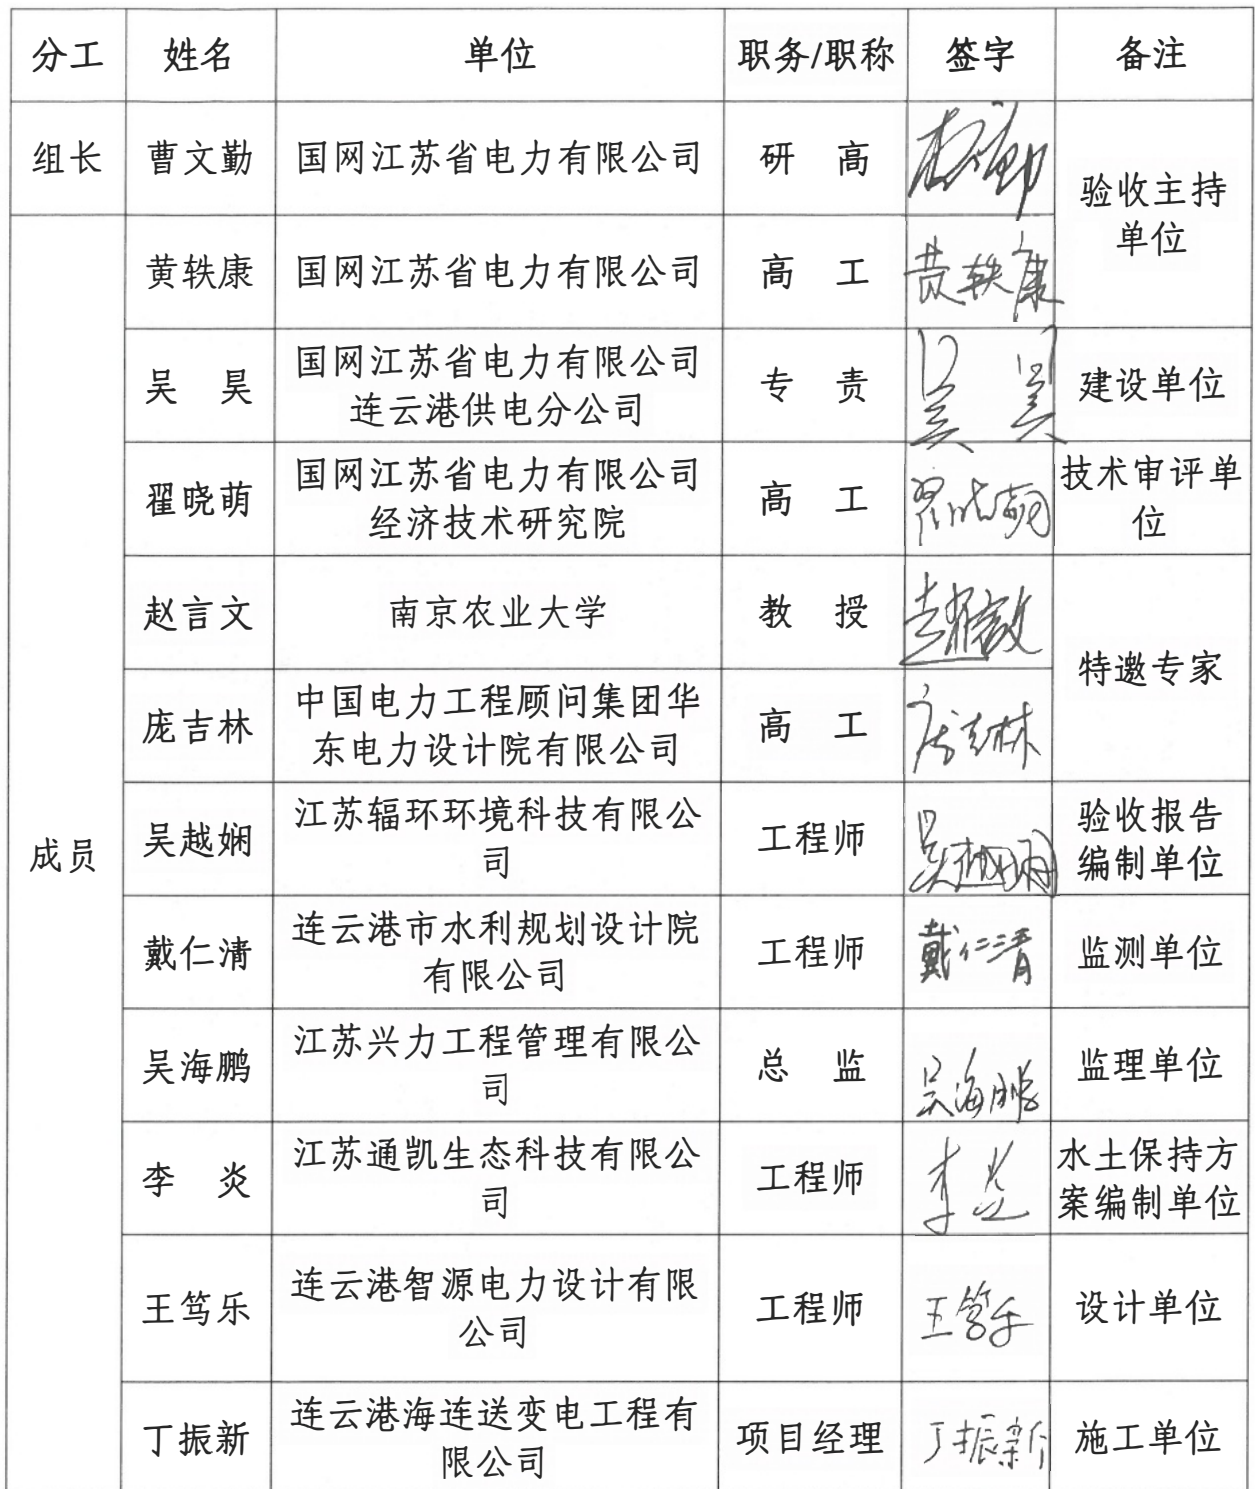 分工 姓名 单位 职务/职称 签字 备注
组长 曹文勤 国网江苏省电力有限公司 研 高 验收主持
单位
成员 黄轶康 国网江苏省电力有限公司 高 工 黄轶康
吴 昊 国网江苏省电力有限公司
连云港供电分公司 专 责 吴 昊 建设单位
翟晓萌 国网江苏省电力有限公司
经济技术研究院 高 工 翟晓萌 技术审评单
位
赵言文 南京农业大学 教 授 特邀专家
庞吉林 中国电力工程顾问集团华
东电力设计院有限公司 高 工 庞吉林
吴越娴 江苏辐环环境科技有限公
司 工程师 吴越娴 验收报告
编制单位
戴仁清 连云港市水利规划设计院
有限公司 工程师 戴仁清 监测单位
吴海鹏 江苏兴力工程管理有限公
司 总 监 吴海鹏 监理单位
李 炎 江苏通凯生态科技有限公
司 工程师 李炎 水土保持方
案编制单位
王笃乐 连云港智源电力设计有限
公司 工程师 王笃乐 设计单位
丁振新 连云港海连送变电工程有
限公司 项目经理 丁振新 施工单位